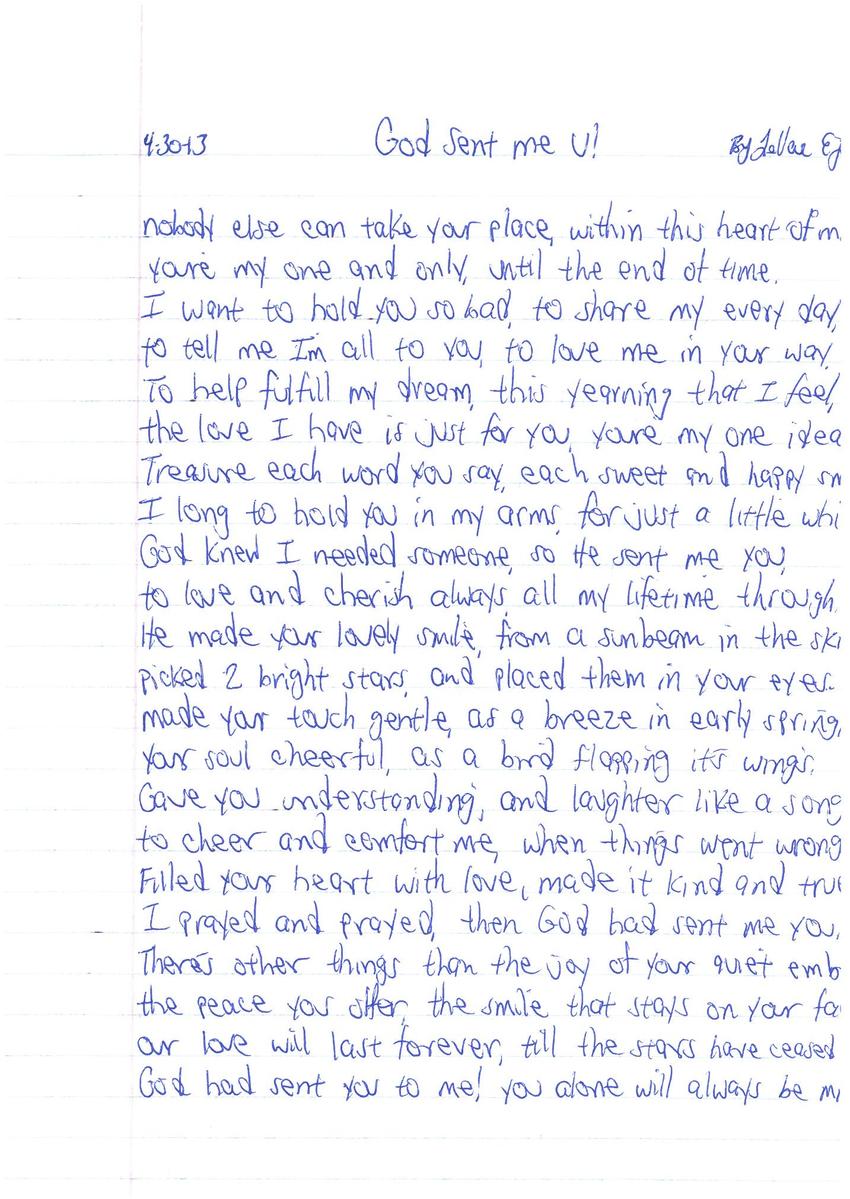 4-30-13 God sent me U! By LaVar Ej
nobody else can take your place, within this heart of m
you're my one and only, until the end of time.
I want to hold you so bad, to share my every day,
to tell me I'm all to you, to love me in your way.
To help fulfill my dream, this yearning that I feel,
the love I have is just for you, you're my one idea
Treasure each word you say, each sweet and happy sm
I long to hold you in my arms, for just a little whi
God knew I needed someone, so He sent me you,
to love and cherish always, all my lifetime through.
He made your lovely smile, from a sunbeam in the ski
picked 2 bright stars, and placed them in your eyes.
made your touch gentle, as a breeze in early spring,
your soul cheerful, as a bird flapping it's wings.
Gave you understanding, and laughter like a song
to cheer and comfort me, when things went wrong
Filled your heart with love, made it kind and true
I prayed and prayed, then God had sent me you.
There's other things than the joy of your quiet emb
the peace you offer, the smile that stays on your fa
our love will last forever, till the stars have ceased
God had sent you to me! you alone will always be mi